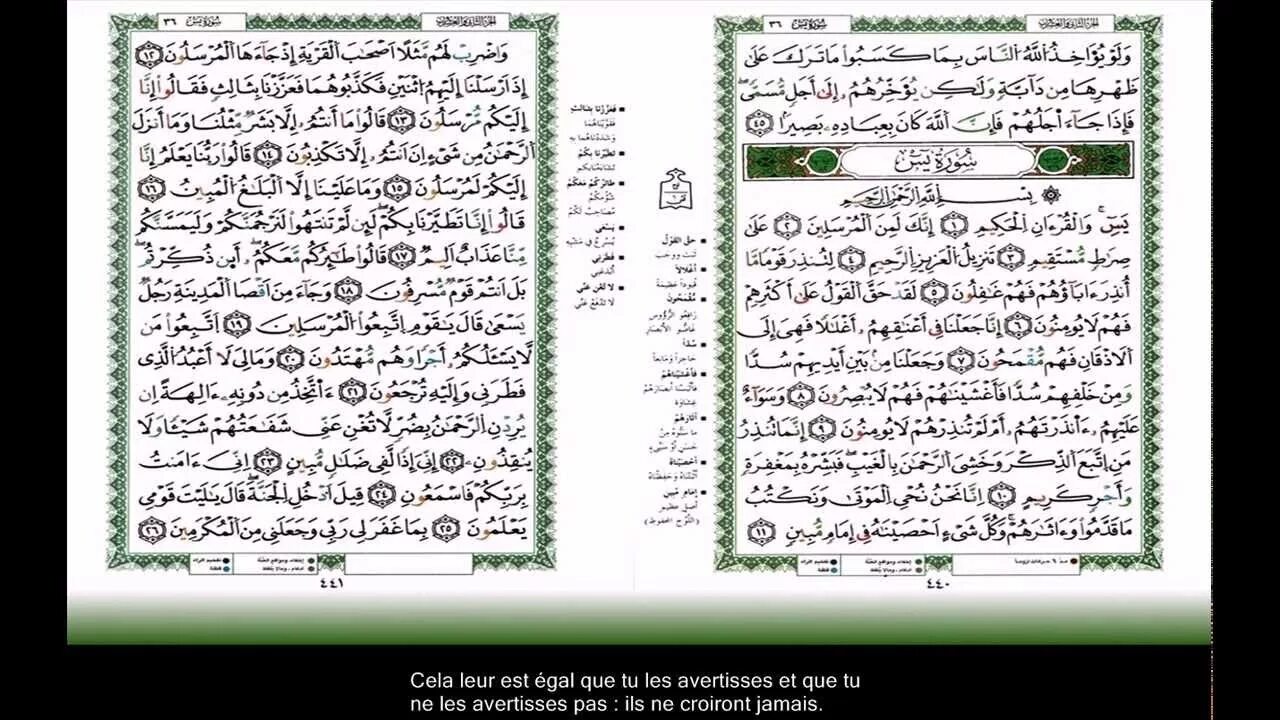 الجزء الثاني والعشرون
سورة يس ٣٦
وَلَوْ يُؤَاخِذُ اللَّهُ النَّاسَ بِمَا كَسَبُوا مَا تَرَكَ عَلَىٰ
ظَهْرِهَا مِن دَآبَّةٍ وَلَٰكِن يُؤَخِّرُهُمُۥ إِلَىٰ أَجَلٖ مُّسَمّىٗ
فَإِذَا جَآءَ اجَلُهُمْ فَإِنَّ اللَّهَ كَانَ بِعِبَادِهِۦ بَصِيراٗ ٤٥
سُورَةُ يَسٓ
بِسْمِ اللَّهِ الرَّحْمَٰنِ الرَّحِيمِ
يَسٓ وَالْقُرْءَانِ الْحَكِيمِ ١ إِنَّكَ لَمِنَ الْمُرْسَلِينَ ٢ عَلَىٰ
صِرَٰطٖ مُّسْتَقِيمٖ ٣ تَنزِيلُ الْعَزِيزِ الرَّحِيمِ ٤ لِتُنذِرَ قَوْماٗ مَّآ
أُنذِرَ ءَابَآؤُهُمْ فَهُمْ غَٰفِلُونَ ٥ لَقَدْ حَقَّ الْقَوْلُ عَلَىٰٓ أَكْثَرِهِمْ
فَهُمْ لَا يُومِنُونَ ٦ إِنَّا جَعَلْنَا فِےٓ أَعْنَٰقِهِمُۥٓ أَغْلَٰلاٗ فَهِيَ إِلَى
اَلَاذْقَانِ فَهُم مُّقْمَحُونَ ٧ وَجَعَلْنَا مِنۢ بَيْنِ أَيْدِيهِمْ سُدّاٗ
وَمِنْ خَلْفِهِمْ سُدّاٗ فَأَغْشَيْنَٰهُمْ فَهُمْ لَا يُبْصِرُونَ ٨ وَسَوَآءٌ
عَلَيْهِمُۥٓ ءَآنذَرْتَهُمُۥٓ أَمْ لَمْ تُنذِرْهُمْ لَا يُومِنُونَ ٩ إِنَّمَا تُنذِرُ
مَنِ اِتَّبَعَ الذِّكْرَ وَخَشِيَ الرَّحْمَٰنَ بِالْغَيْبِ فَبَشِّرْهُ بِمَغْفِرَةٖ
وَأَجْرٖ كَرِيمٍ ١٠ إِنَّا نَحْنُ نُحْيِ الْمَوْتَىٰ وَنَكْتُبُ
مَا قَدَّمُوا وَءَاثَٰرَهُمْ وَكُلَّ شَےْءٍ اَحْصَيْنَٰهُ فِےٓ إِمَامٖ مُّبِينٖ ١١
حق القول
ثبت ووجب
أغلالاً
قيوداً عظيمة
مقمحون
رافعو الرؤوس
غاضو الأبصار
سداً
حاجزاً ومانعاً
فأغشيناهم
فألبسنا أبصارهم
غشاوة
آثارهم
ما سنوه من
حسن أو سيئ
أحصيناه
أثبتناه وحفظناه
إمام مبين
أصل عظيم
(اللوح المحفوظ)
٤٤٠
الجزء الثاني والعشرون
سورة يس ٣٦
وَاضْرِبْ لَهُم مَّثَلاً اَصْحَٰبَ الْقَرْيَةِ إِذْ جَآءَهَا الْمُرْسَلُونَ ١٢
إِذَ اَرْسَلْنَآ إِلَيْهِمُ اثْنَيْنِ فَكَذَّبُوهُمَا فَعَزَّزْنَا بِثَالِثٖ فَقَالُوٓا إِنَّآ
إِلَيْكُم مُّرْسَلُونَ ١٣ قَالُوا مَآ أَنتُمُۥٓ إِلَّا بَشَرٌ مِّثْلُنَا وَمَآ أَنزَلَ
الرَّحْمَٰنُ مِن شَےْءٍ اِنَ اَنتُمُۥٓ إِلَّا تَكْذِبُونَ ١٤ قَالُوا رَبُّنَا يَعْلَمُ إِنَّآ
إِلَيْكُمْ لَمُرْسَلُونَ ١٥ وَمَا عَلَيْنَآ إِلَّا الْبَلَٰغُ الْمُبِينُ ١٦
قَالُوٓا إِنَّا تَطَيَّرْنَا بِكُمْ لَئِن لَّمْ تَنتَهُوا لَنَرْجُمَنَّكُمْ وَلَيَمَسَّنَّكُم
مِّنَّا عَذَابٌ اَلِيمٌ ١٧ قَالُوا طَٰٓئِرُكُم مَّعَكُمُۥٓ أَئِن ذُكِّرْتُم
بَلَ اَنتُمْ قَوْمٌ مُّسْرِفُونَ ١٨ وَجَآءَ مِنَ اَقْصَا الْمَدِينَةِ رَجُلٌ
يَسْعَىٰ قَالَ يَٰقَوْمِ اِتَّبِعُوا الْمُرْسَلِينَ ١٩ اَتَّبِعُوا مَن
لَّا يَسْـَٔلُكُمُۥٓ أَجْراٗ وَهُم مُّهْتَدُونَ ٢٠ وَمَا لِيَ لَآ أَعْبُدُ الَّذِے
فَطَرَنِے وَإِلَيْهِ تُرْجَعُونَ ٢١ ءَآتَّخِذُ مِن دُونِهِۦٓ ءَالِهَةً اِنْ
يُرِدْنِ الرَّحْمَٰنُ بِضُرّٖ لَّا تُغْنِ عَنِّے شَفَٰعَتُهُمْ شَيْـٔاٗ وَلَا
يُنقِذُونِ ٢٢ إِنِّيَ إِذاٗ لَّفِے ضَلَٰلٖ مُّبِينٍ ٢٣ اِنِّيَ ءَامَنتُ
بِرَبِّكُمْ فَاسْمَعُونِ ٢٤ قِيلَ اَدْخُلِ الْجَنَّةَ قَالَ يَٰلَيْتَ قَوْمِے
يَعْلَمُونَ ٢٥ بِمَا غَفَرَ لِے رَبِّے وَجَعَلَنِے مِنَ الْمُكْرَمِينَ ٢٦
فعززنا بثالث
فقويناهما
وشددناهما به
تطيرنا بكم
تشاءمنا بكم
طائركم معكم
شؤمكم
مصاحب لكم
يسعى
يسرع في مشيه
فطرني
أبدعني
لا تغن عني
لا تدفع عني
٤٤١
Cela leur est égal que tu les avertisses et que tu
ne les avertisses pas : ils ne croiront jamais.